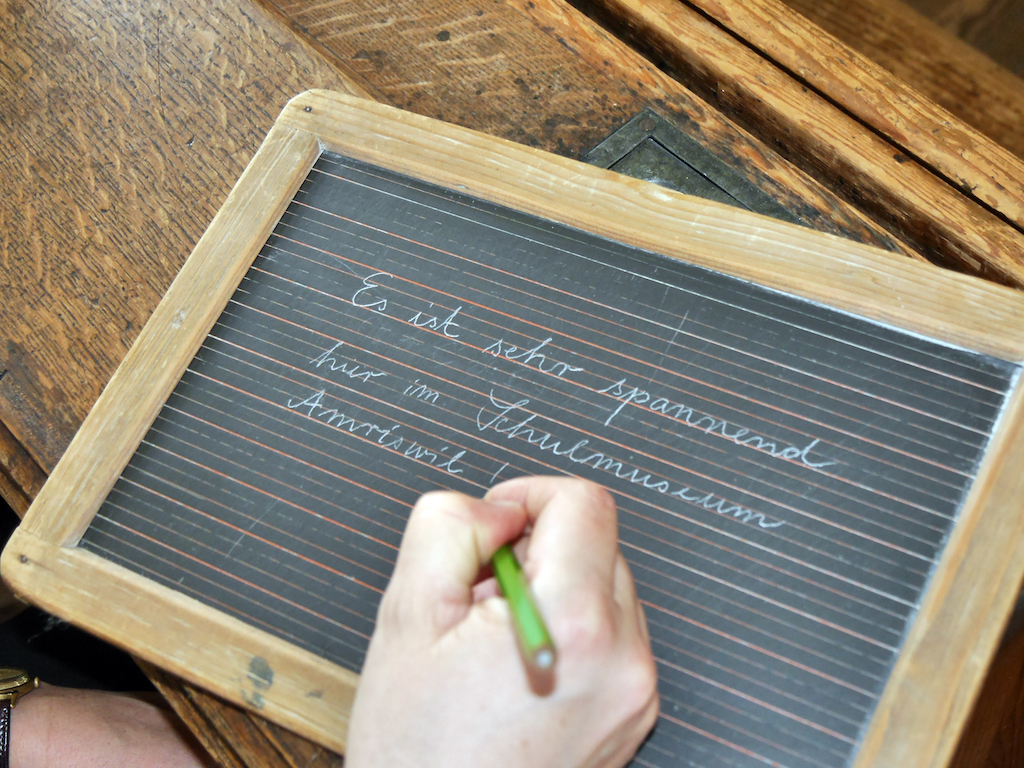 Es ist sehr spannend
hier im Schulmuseum
Amriswil !